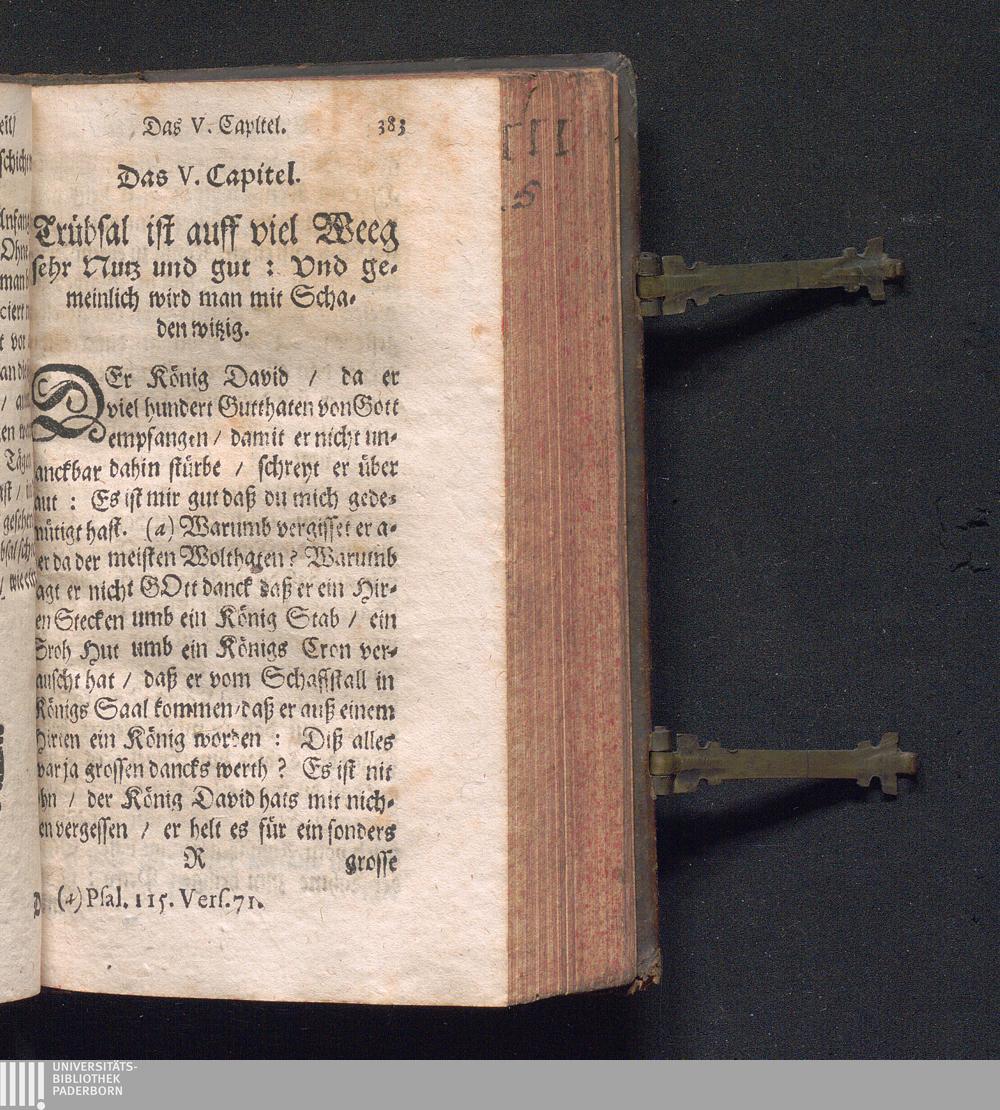 Das V. Capitel. 383
Das V. Capitel.
Trübsal ist auff viel Weeg
sehr Nutz und gut : Vnd ge-
meinlich wird man mit Scha-
den witzig.
DEr König David / da er
viel hundert Gutthaten von Gott
empfangen / damit er nicht un-
anckbar dahin stürbe / schreyt er über
aut : Es ist mir gut daß du mich gede-
mütigt hast. (a) Warumb vergisset er a-
er da der meisten Wolthaten ? Warumb
agt er nicht GOtt danck daß er ein Hir-
en Stecken umb ein König Stab / ein
Sroh Hut umb ein Königs Cron ver-
auscht hat / daß er vom Schafstall in
Königs Saal kommen / daß er auß einem
Hirten ein König worden : Diß alles
war ja grossen dancks werth ? Es ist nit
ohn / der König David hats mit nich-
en vergessen / er helt es für ein sonders
R grosse
(a) Psal. 115. Vers. 71.
eil /
schicht
Anfang
Ohne
man
ciert
t vor
an die
/ au
en
Täge
ast / in
geschehen
/ wie ein
III
5
UNIVERSITÄTS-
BIBLIOTHEK
PADERBORN